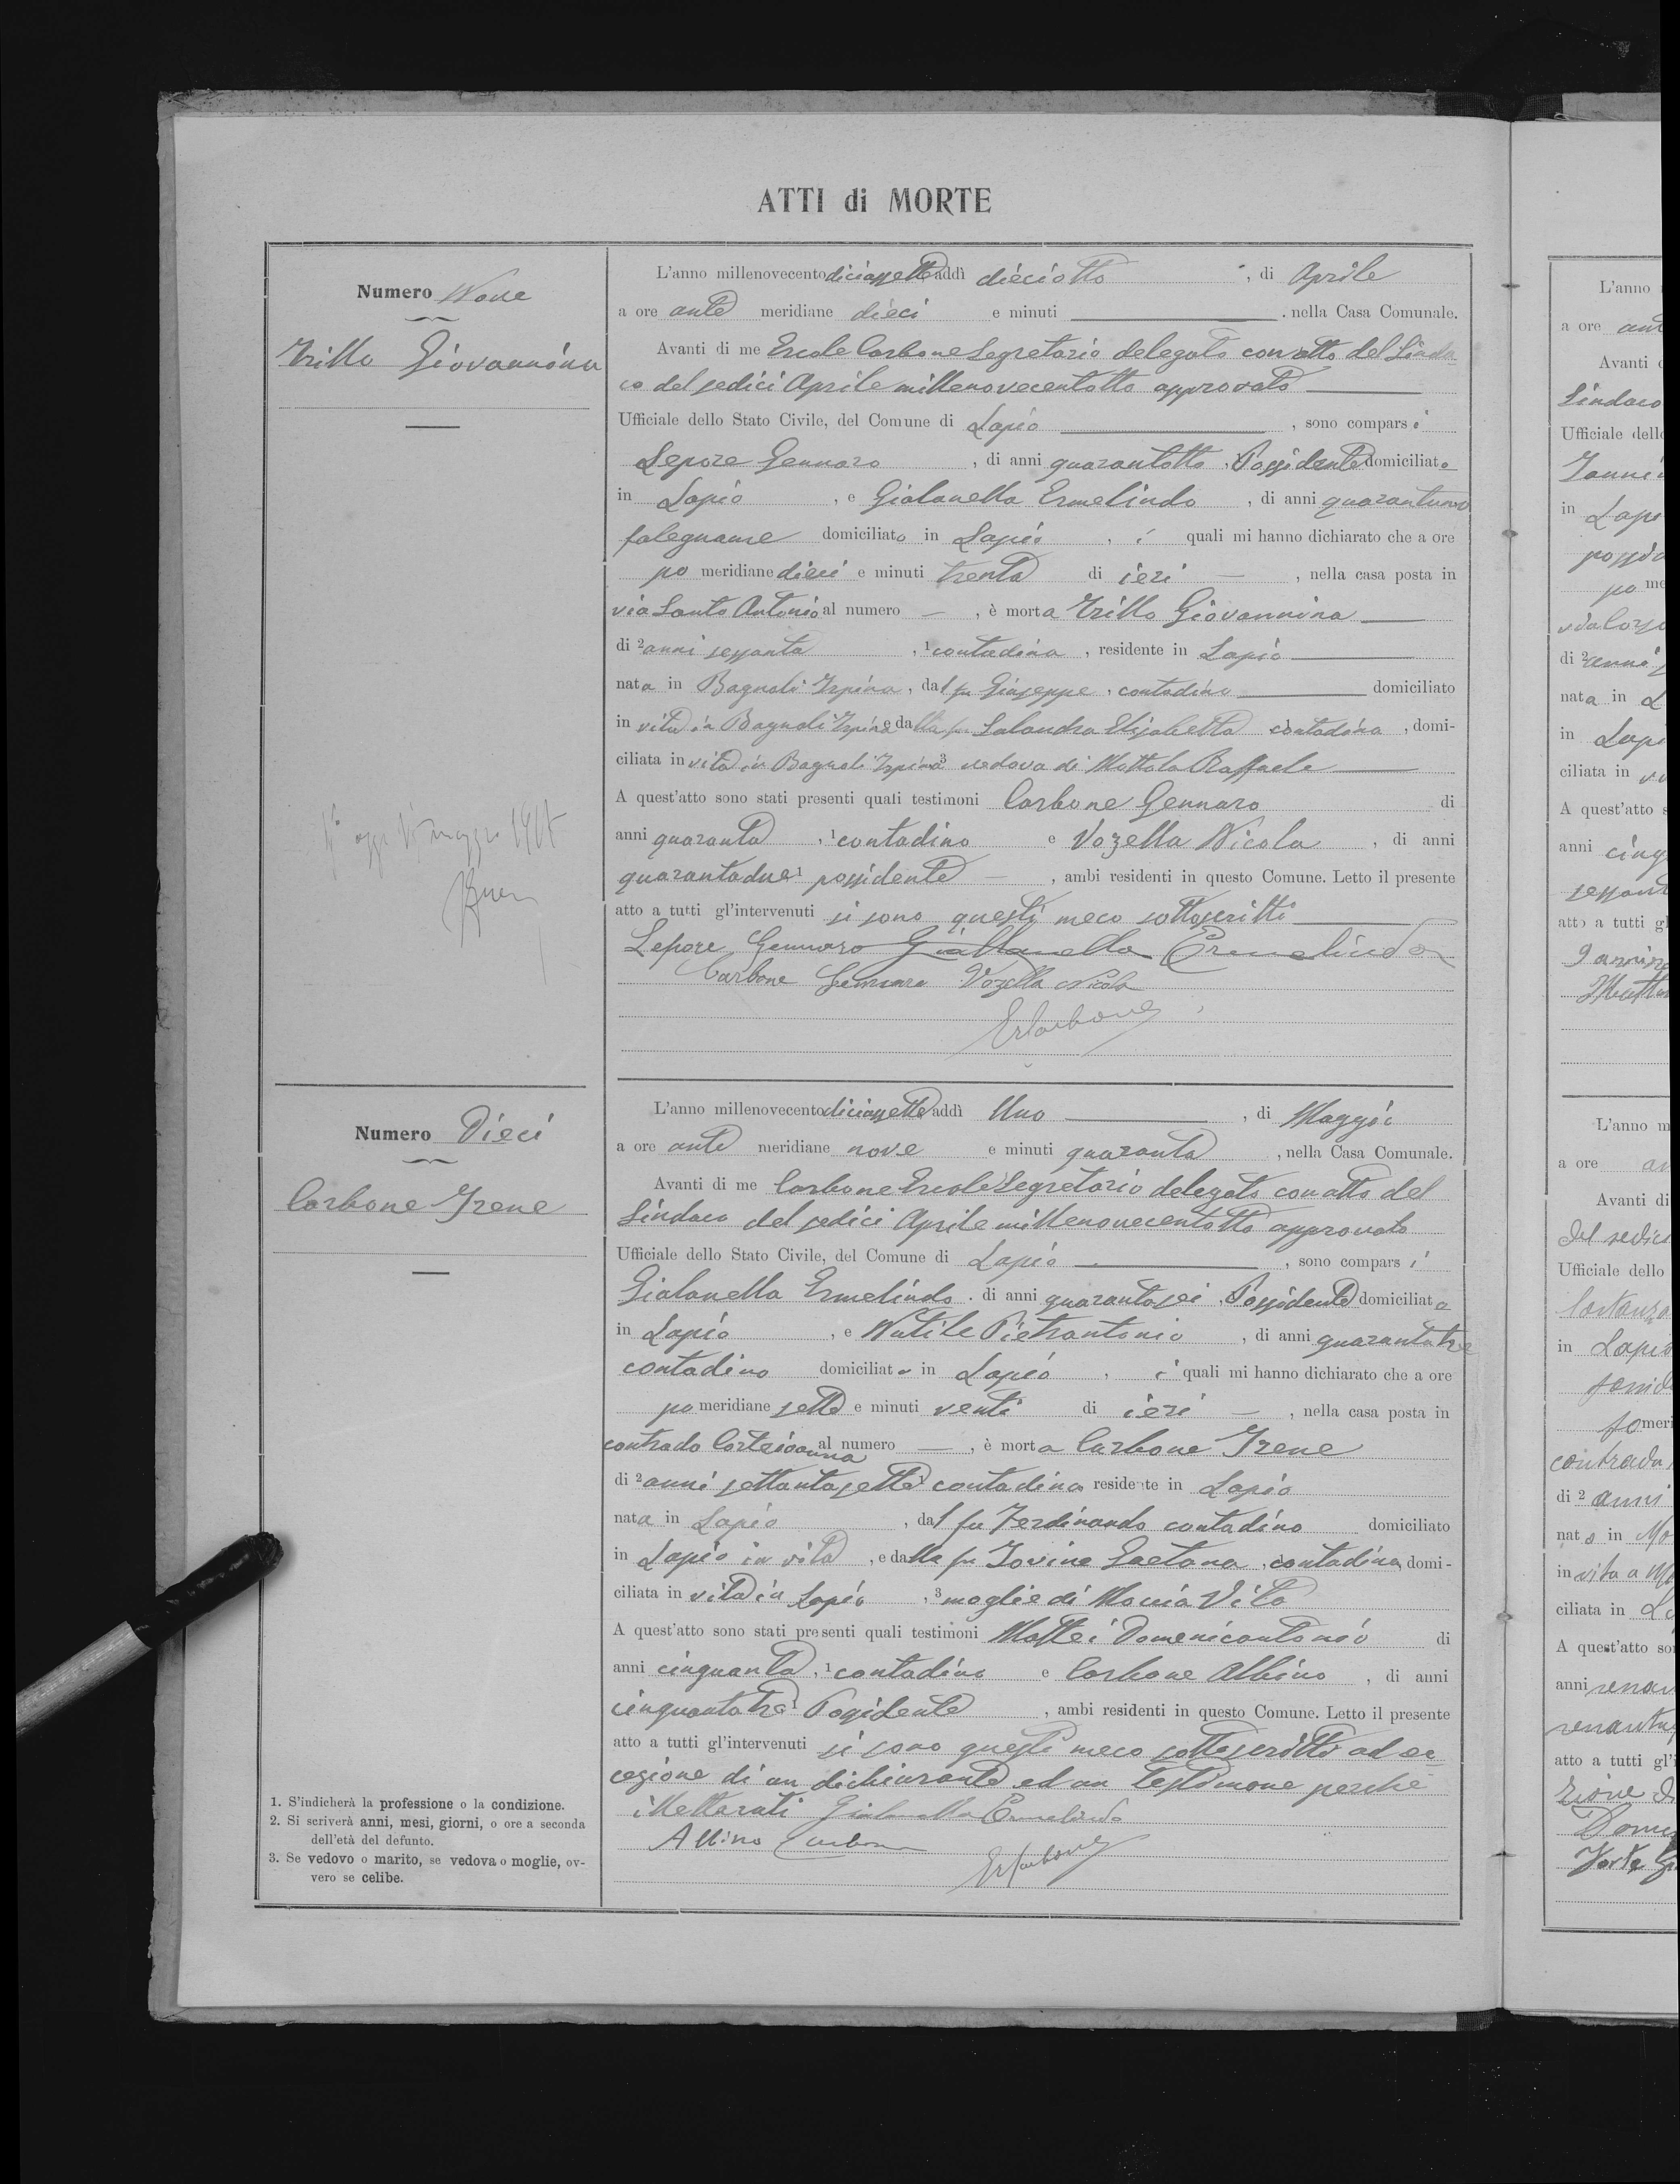 ATTI di MORTE
Numero Nove
Trillo Giovannina
L'anno millenovecentodiciassette addì dieciotto, di Aprile
a ore ante meridiane dieci e minuti, nella Casa Comunale.
Avanti di me Ercole Carbone Segretario delegato con atto del Sinda-
co del sedici Aprile millenovecentotto approvato
Ufficiale dello Stato Civile, del Comune di Lapio, sono comparsi
Lepore Gennaro, di anni quarantotto, Possidente domiciliato
in Lapio, e Gialanella Ermelindo, di anni
falegname domiciliato in Lapio, i quali mi hanno dichiarato che a ore
po meridiane dieci e minuti trenta di ieri —, nella casa posta in
via Santo Antonio al numero —, è morta Trillo Giovannina
di ²anni sessanta, ¹contadina, residente in Lapio
nata in Bagnoli Irpino, dal fu Giuseppe, contadino domiciliato
in vita in Bagnoli Irpino e dalla fu Salandra Elisabetta contadina, domi-
ciliata in vita in Bagnoli Irpino ³ vedova di Mattola Raffaele
A quest'atto sono stati presenti quali testimoni Carbone Gennaro di
anni quaranta, ¹contadino e Vozella Nicola, di anni
quarantadue ¹ possidente —, ambi residenti in questo Comune. Letto il presente
atto a tutti gl'intervenuti si sono questi meco sottoscritti
Lepore Gennaro Giallanella Ermelindo
Carbone Gennaro Vozella Nicola
ErCarbone
maggio
Numero Dieci
Carbone Irene
L'anno millenovecentodiciassette addì Uno, di Maggio
a ore ante meridiane nove e minuti quaranta, nella Casa Comunale.
Avanti di me Carbone Ercole Segretario delegato con atto del
Sindaco del sedici Aprile millenovecentotto approvato
Ufficiale dello Stato Civile, del Comune di Lapio, sono comparsi
Gialanella Ermelindo. di anni quarantasei, Possidente domiciliato
in Lapio, e Nutile Pietrantonio, di anni quarantatre
contadino domiciliato in Lapio, i quali mi hanno dichiarato che a ore
po meridiane sette e minuti venti di ieri —, nella casa posta in
contrada al numero —, è morta Carbone Irene
di ²anni settantasette ¹ contadina residente in Lapio
nata in Lapio, dal fu Ferdinando contadino domiciliato
in Lapio in vita, e dalla fu Iovine Gaetana, contadina, domi-
ciliata in vita in Lapio, ³moglie di Maccia Vito
A quest'atto sono stati presenti quali testimoni Mattei Domenicantonio di
anni cinquanta, ¹contadino e Carbone Albino, di anni
cinquantatre ¹ Possidente, ambi residenti in questo Comune. Letto il presente
atto a tutti gl'intervenuti si sono questi meco sottoscritti ad ec
cezione di un dichiarante ed un testimone perché
illetterati Gialanella Ermelindo
Albino Carbone
ErCarbone
1. S'indicherà la professione o la condizione.
2. Si scriverà anni, mesi, giorni, o ore a seconda
dell'età del defunto.
3. Se vedovo o marito, se vedova o moglie, ov-
vero se celibe.
L'anno
a ore
Avanti
Sindaco
Ufficiale dello
in Lapi
po me
di ²anni
nata in L
in Lapi
ciliata in
A quest'atto s
anni
atto a tutti gl
L'anno m
a ore
Avanti di
del sedici
Ufficiale dello
in Lapio
contrada
di ² anni
nato in Mo
in vita a
ciliata in
A quest'atto so
anni
atto a tutti gl'i